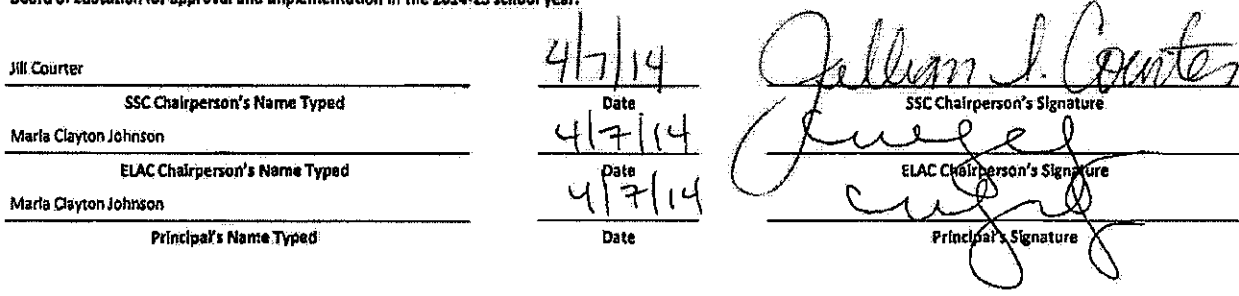 Board of Education for approval and implementation in the 2014-15 school year.
Jill Courter 4/7/14 Jillian S. Courter
SSC Chairperson's Name Typed Date SSC Chairperson's Signature
Marla Clayton Johnson 4/7/14
ELAC Chairperson's Name Typed Date ELAC Chairperson's Signature
Marla Clayton Johnson 4/7/14
Principal's Name Typed Date Principal's Signature